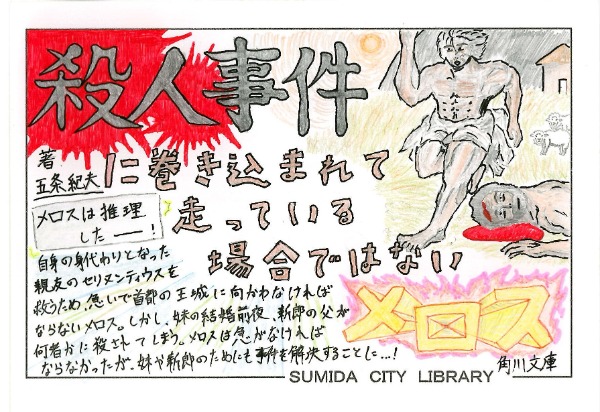 殺人事件
著
五条紀夫
に巻き込まれて
走っている
場合ではない
メロスは推理
した――!
自身の身代わりとなった
親友のセリヌンティウスを
救うため、急いで首都の王城に向かわなければ
ならないメロス。しかし、妹の結婚前夜、新郎の父が
何者かに殺されてしまう。メロスは急がなければ
ならなかったが、妹や新郎のためにも事件を解決することに…!
メロス
角川文庫
SUMIDA CITY LIBRARY